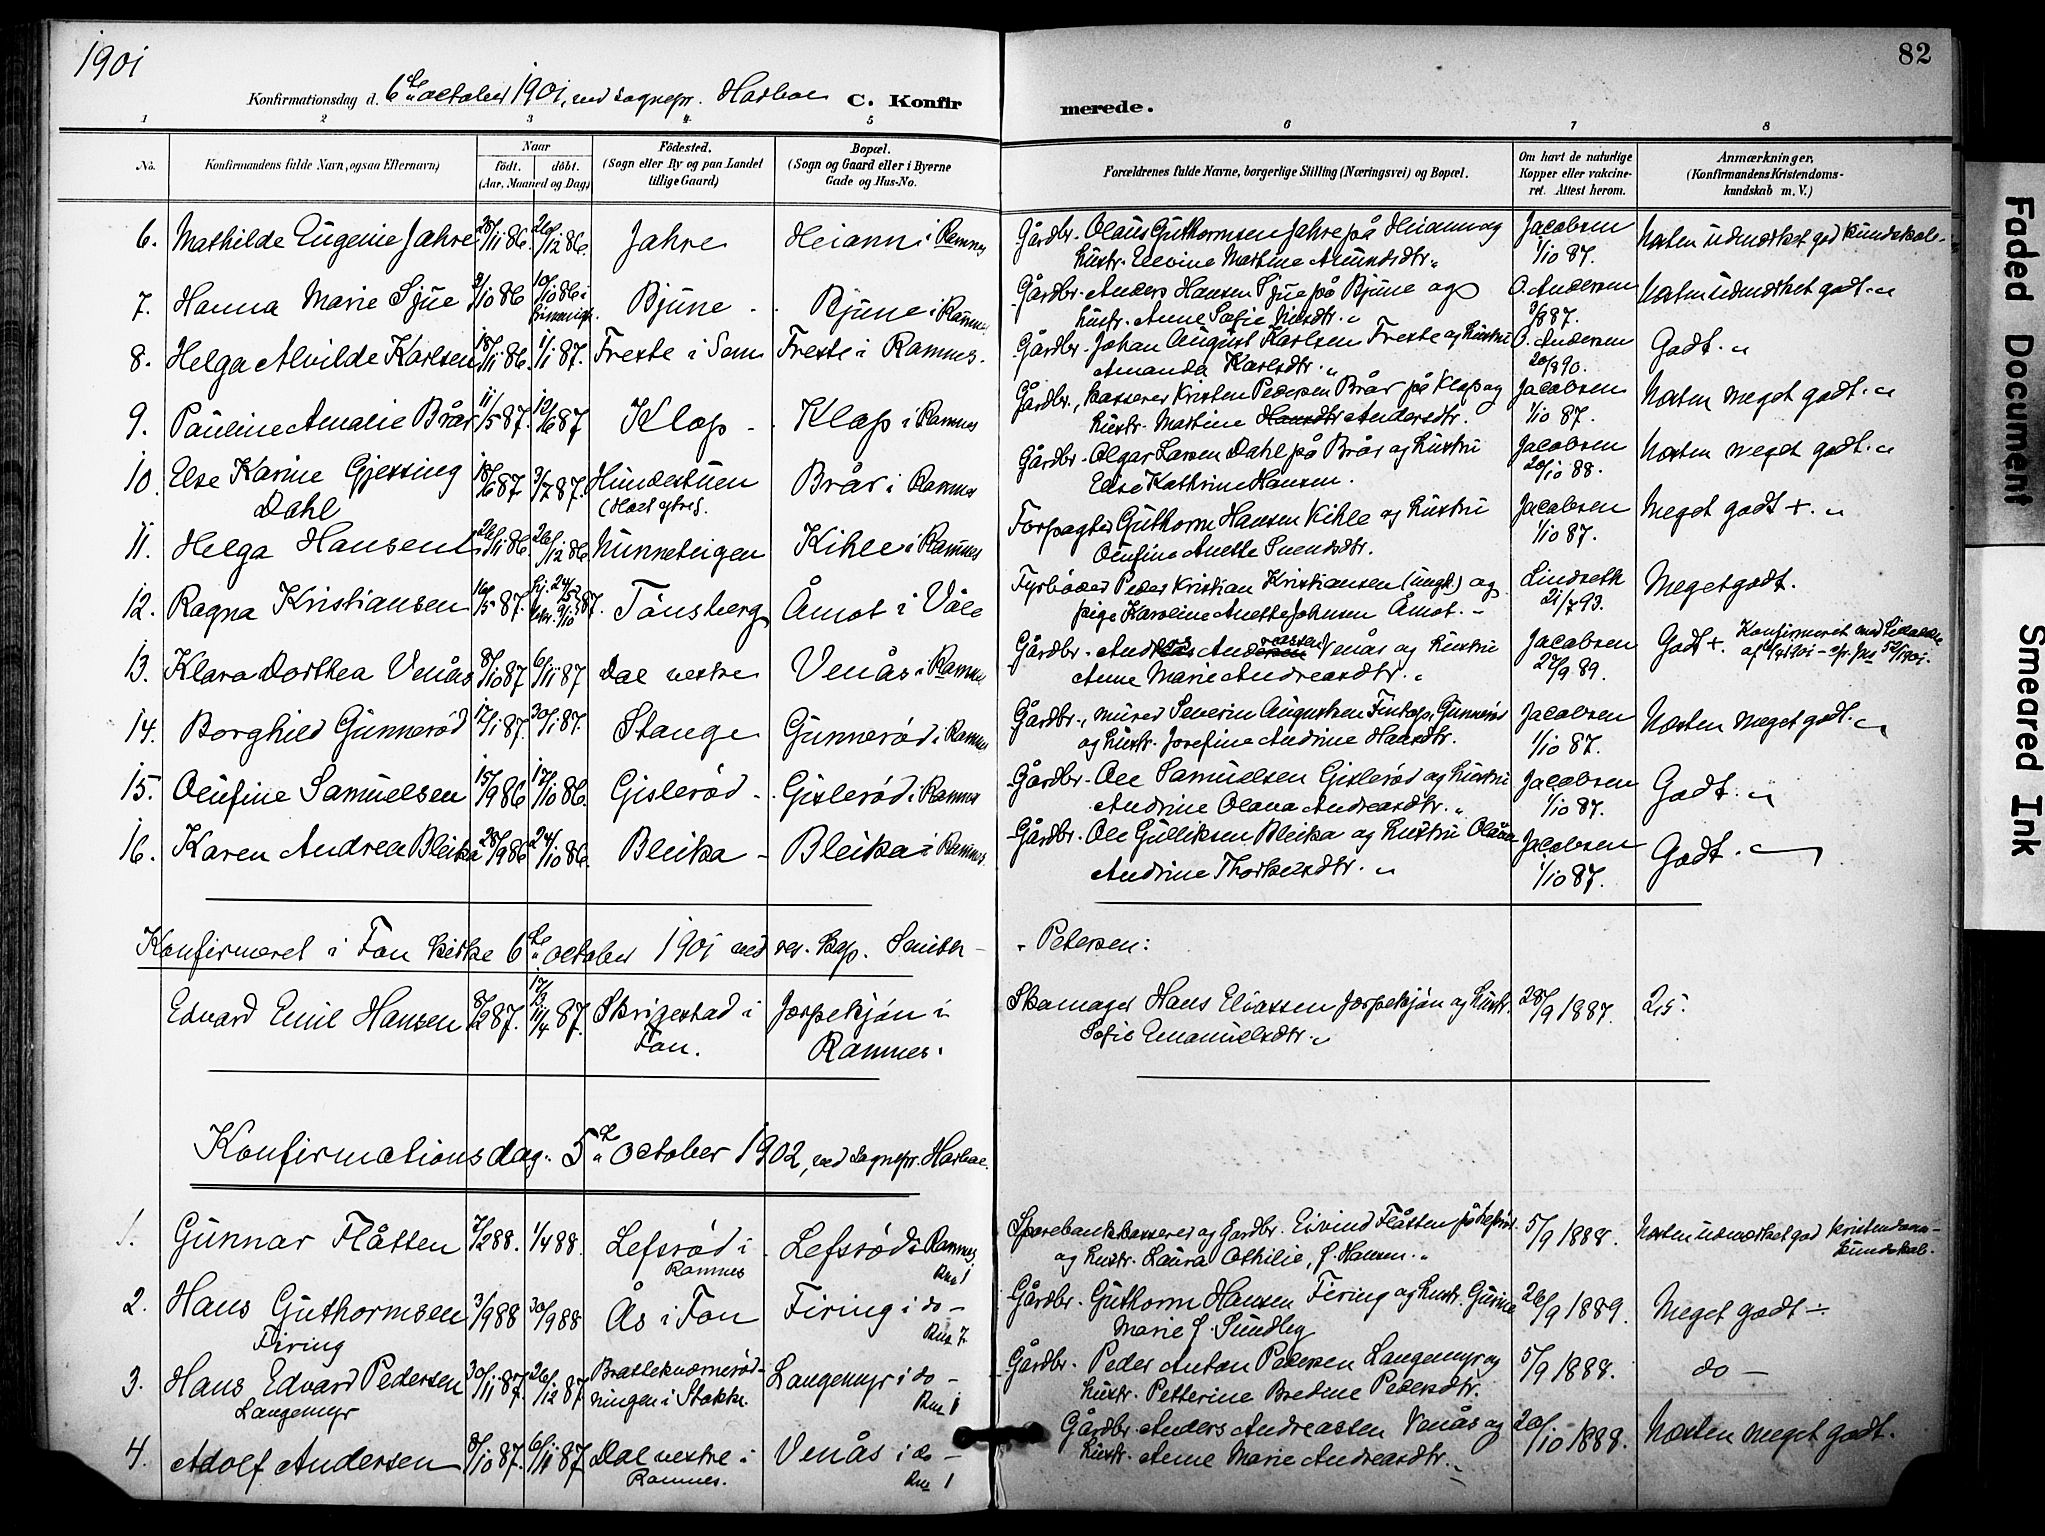 1901
82
Konfirmationsdag d. 6te october 1901, ved sognepr. Harboe C. Konfir
merede.
1 2 3 4 5
6 7 8
No. Konfirmandens fulde Navn, ogsaa Efternavn) Naar födt. döbt. (Aar, Maaned og Dag) Födested. (Sogn eller By og paa Landet tillige Gaard) Bopæl. (Sogn og Gaard eller i Byerne Gade og Hus-No.
Forældrenes fulde Navne, borgerlige Stilling (Næringsvei) og Bopæl. Om havt de naturlige Kopper eller vakcineret. Attest herom. Anmærkninger, (Konfirmandens Kristendomskundskab m. V.)
6. Mathilde Eugenie Jahre 28/11 86. 26/12 86. Jahre Heian i Ramnes
Gårdbr. Olaus Guthormsen Jahre på Heian og Jacobsen Næsten udmærket god kundskab.
hustr. Elevine Martine Amundsdtr. 1/10 87.
7. Hanna Marie Sjue 3/10 86 10/10 86 i Bjune Bjune i Ramnes
Gårdbr. Anders Hansen Sjue på Bjune og O. Andersen Næsten udmærket godt.
hustr. Anne Sofie Nilsdtr. 3/8 87.
8. Helga Alvilde Karlsen 18/11 86. 1/1 87. Freste i Sem Freste i Ramnes.
Gårdbr. Johan August Karlsen Freste og hustru O. Andersen Godt.
Amanda Karlsdtr. 20/8 90.
9. Pauline Amalie Brår 11/5 87. 12/6 87 Klop Klop i Ramnes
Gårdbr., kasserer Kristen Pedersen Brår på Klop og Jacobsen Næsten meget godt.
hustr. Martine Hansdtr Andersdtr. 1/10 87.
10. Else Karine Gjessing 18/6 87 3/7 87. Hundestuen Brår i Ramnes
Dahl
Gårdbr. Olgar Larsen Dahl på Brår og hustru Jacobsen Næsten meget godt.
Else Kathrine Hansen. 20/10 88.
11. Helga Hansen 26/11 86. 26/12 86. Nunneteigen Kihle i Ramnes
Forpagter Guthorm Hansen Kihle og hustru Jacobsen Meget godt +.
Olufine Anette Svendsdtr. 1/10 87.
12. Ragna Kristiansen 16/5 87. Tönsberg Åmot i Våle
Fyrböder Peder Kristian Kristiansen (ungk.) og Lindseth Meget godt.
pige Karoline Anette Johnsen Åmot. 21/7 93.
13. Klara Dorthea Venås 8/10 87 6/11 87 Dal vestre Venås i Ramnes
Gårdbr. Anders Andreassen Venås og hustru Jacobsen Godt +. Konfirmeret med
Anne Marie Andreasdtr. 27/9 89.
14. Borghild Gunnerød 17/1 87. 30/1 87. Stange Gunnerød i Ramnes
Gårdbr., murer Severin Augustsen Gunnerød Jacobsen Næsten meget godt.
og hustr. Josefine Andrine Hansdtr. 1/10 87.
15. Olufine Samuelsen 15/9 86 17/10 86. Gislerød Gislerød i Ramnes
Gårdbr. Ole Samuelsen Gislerød og hustru Jacobsen Godt.
Andrine Olava Andreasdtr. 1/10 87.
16. Karen Andrea Bleika 28/9 86 24/10 86. Bleika Bleika i Ramnes.
Gårdbr. Ole Gulliksen Bleika og hustru Olava Jacobsen Godt.
Andrine Thorkelsdtr. 1/10 87.
Konfirmeret i Fon kirke 6te october 1901 ved res. kap. Smith-
Petersen:
Edvard Emil Hansen 8/2 87. 87. Skrigestad i Jorpekjøn i
Fon. Ramnes.
Skomager Hans Eliassen Jorpekjøn og hustr. 28/9 1887. 2,5.
Sofie Emanuelsdtr.
Konfirmationsdag 5te october 1902, ved sognepr. Harboe.
1. Gunnar Flåtten 7/2 88. 1/4 88. Lefsrød i Lefsrød i Ramnes.
Ramnes Rns 1
Sparebankkasserer og gårdbr. Eivind Flåtten på Lefsrød 5/9 1888. Næsten udmærket god kristendoms-
og hustr. Laura Othilie, f. Hansen. kundskab.
2. Hans Guthormsen 3/9 88 30/9 88 Ås i Fon Firing i do
Firing
Gårdbr. Guthorm Hansen Firing og hustr. Gurine 26/9 1889. Meget godt ÷
Marie f. Sundby
3. Hans Edvard Pedersen 30/11 87. 26/12 87 ningen i Stokke. Langemyr i do
Langemyr
Gårdbr. Peder Anton Pedersen Langemyr og 5/9 1888. do
hustr. Petterine Bredine Pedersdtr.
4. Adolf Andersen 8/10 87. 6/11 87 Dal vestre i Venås i do
Ramnes. Rns 1
Gårdbr. Anders Andreassen Venås og 20/10 1888. Næsten meget godt.
hustr. Anne Marie Andreasdtr.
Faded Document
Smeared Ink